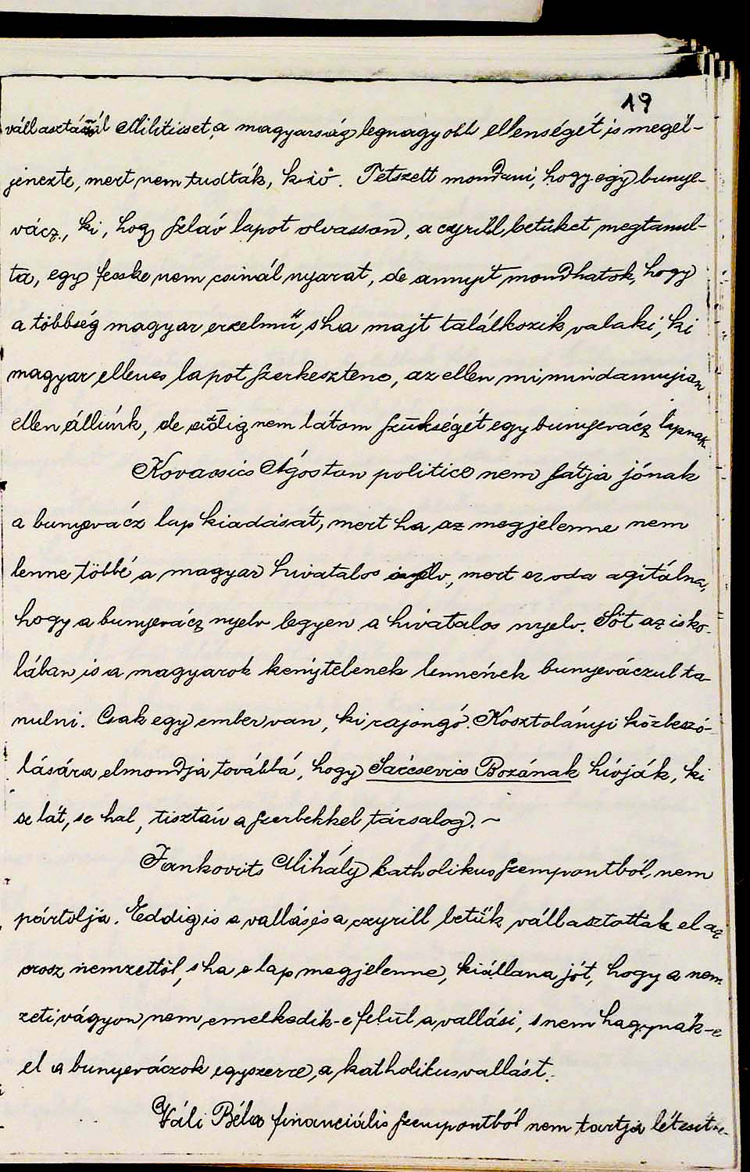 19
választásnál Militicset, a magyarság legnagyobb ellenségét is megél-
jenezte, mert nem tudták, ki ő. Tetszett mondani, hogy egy bunye-
vácz, ki, hogy szláv lapot olvasson, a cyrill betüket megtanul-
ta, egy fecske nem csinál nyarat, de annyit mondhatok, hogy
a többség magyar érzelmű, s ha majt találkozik valaki, ki
magyar ellenes lapot szerkesztene, az ellen mi mindannyian
ellen állünk, de addig nem látom szükségét egy bunyevácz lapnak.
Kovacsics Ágoston politice nem látja jónak
a bunyevácz lap kiadását, mert ha az megjelenne nem
lenne többé a magyar hivatalos nyelv, mert ez oda agitálna,
hogy a bunyevácz nyelv legyen a hivatalos nyelv. Sőt az isko-
lában is a magyarok kénytelenek lennének bunyeváczul ta-
nulni. Csak egy ember van, ki rajongó. Kosztolányi közbeszó-
lására elmondja továbbá, hogy Sarcsevics Bozának hívják, ki
se lát, se hal, tisztán a szerbekkel társalog. ~
Jankovits Mihály katholikus szempontból nem
pártolja. Eddig is a vallás és a czyrill betük választottak el az
orosz nemzettől, s ha e lap megjelenne, kiállana jót, hogy a nem-
zeti vágyon nem emelkedik-e felül a vallási, s nem hagynák-e
el a bunyeváczok egyszerre a katholikus vallást.
Váli Béla financiális szempontból nem tartja létesít-